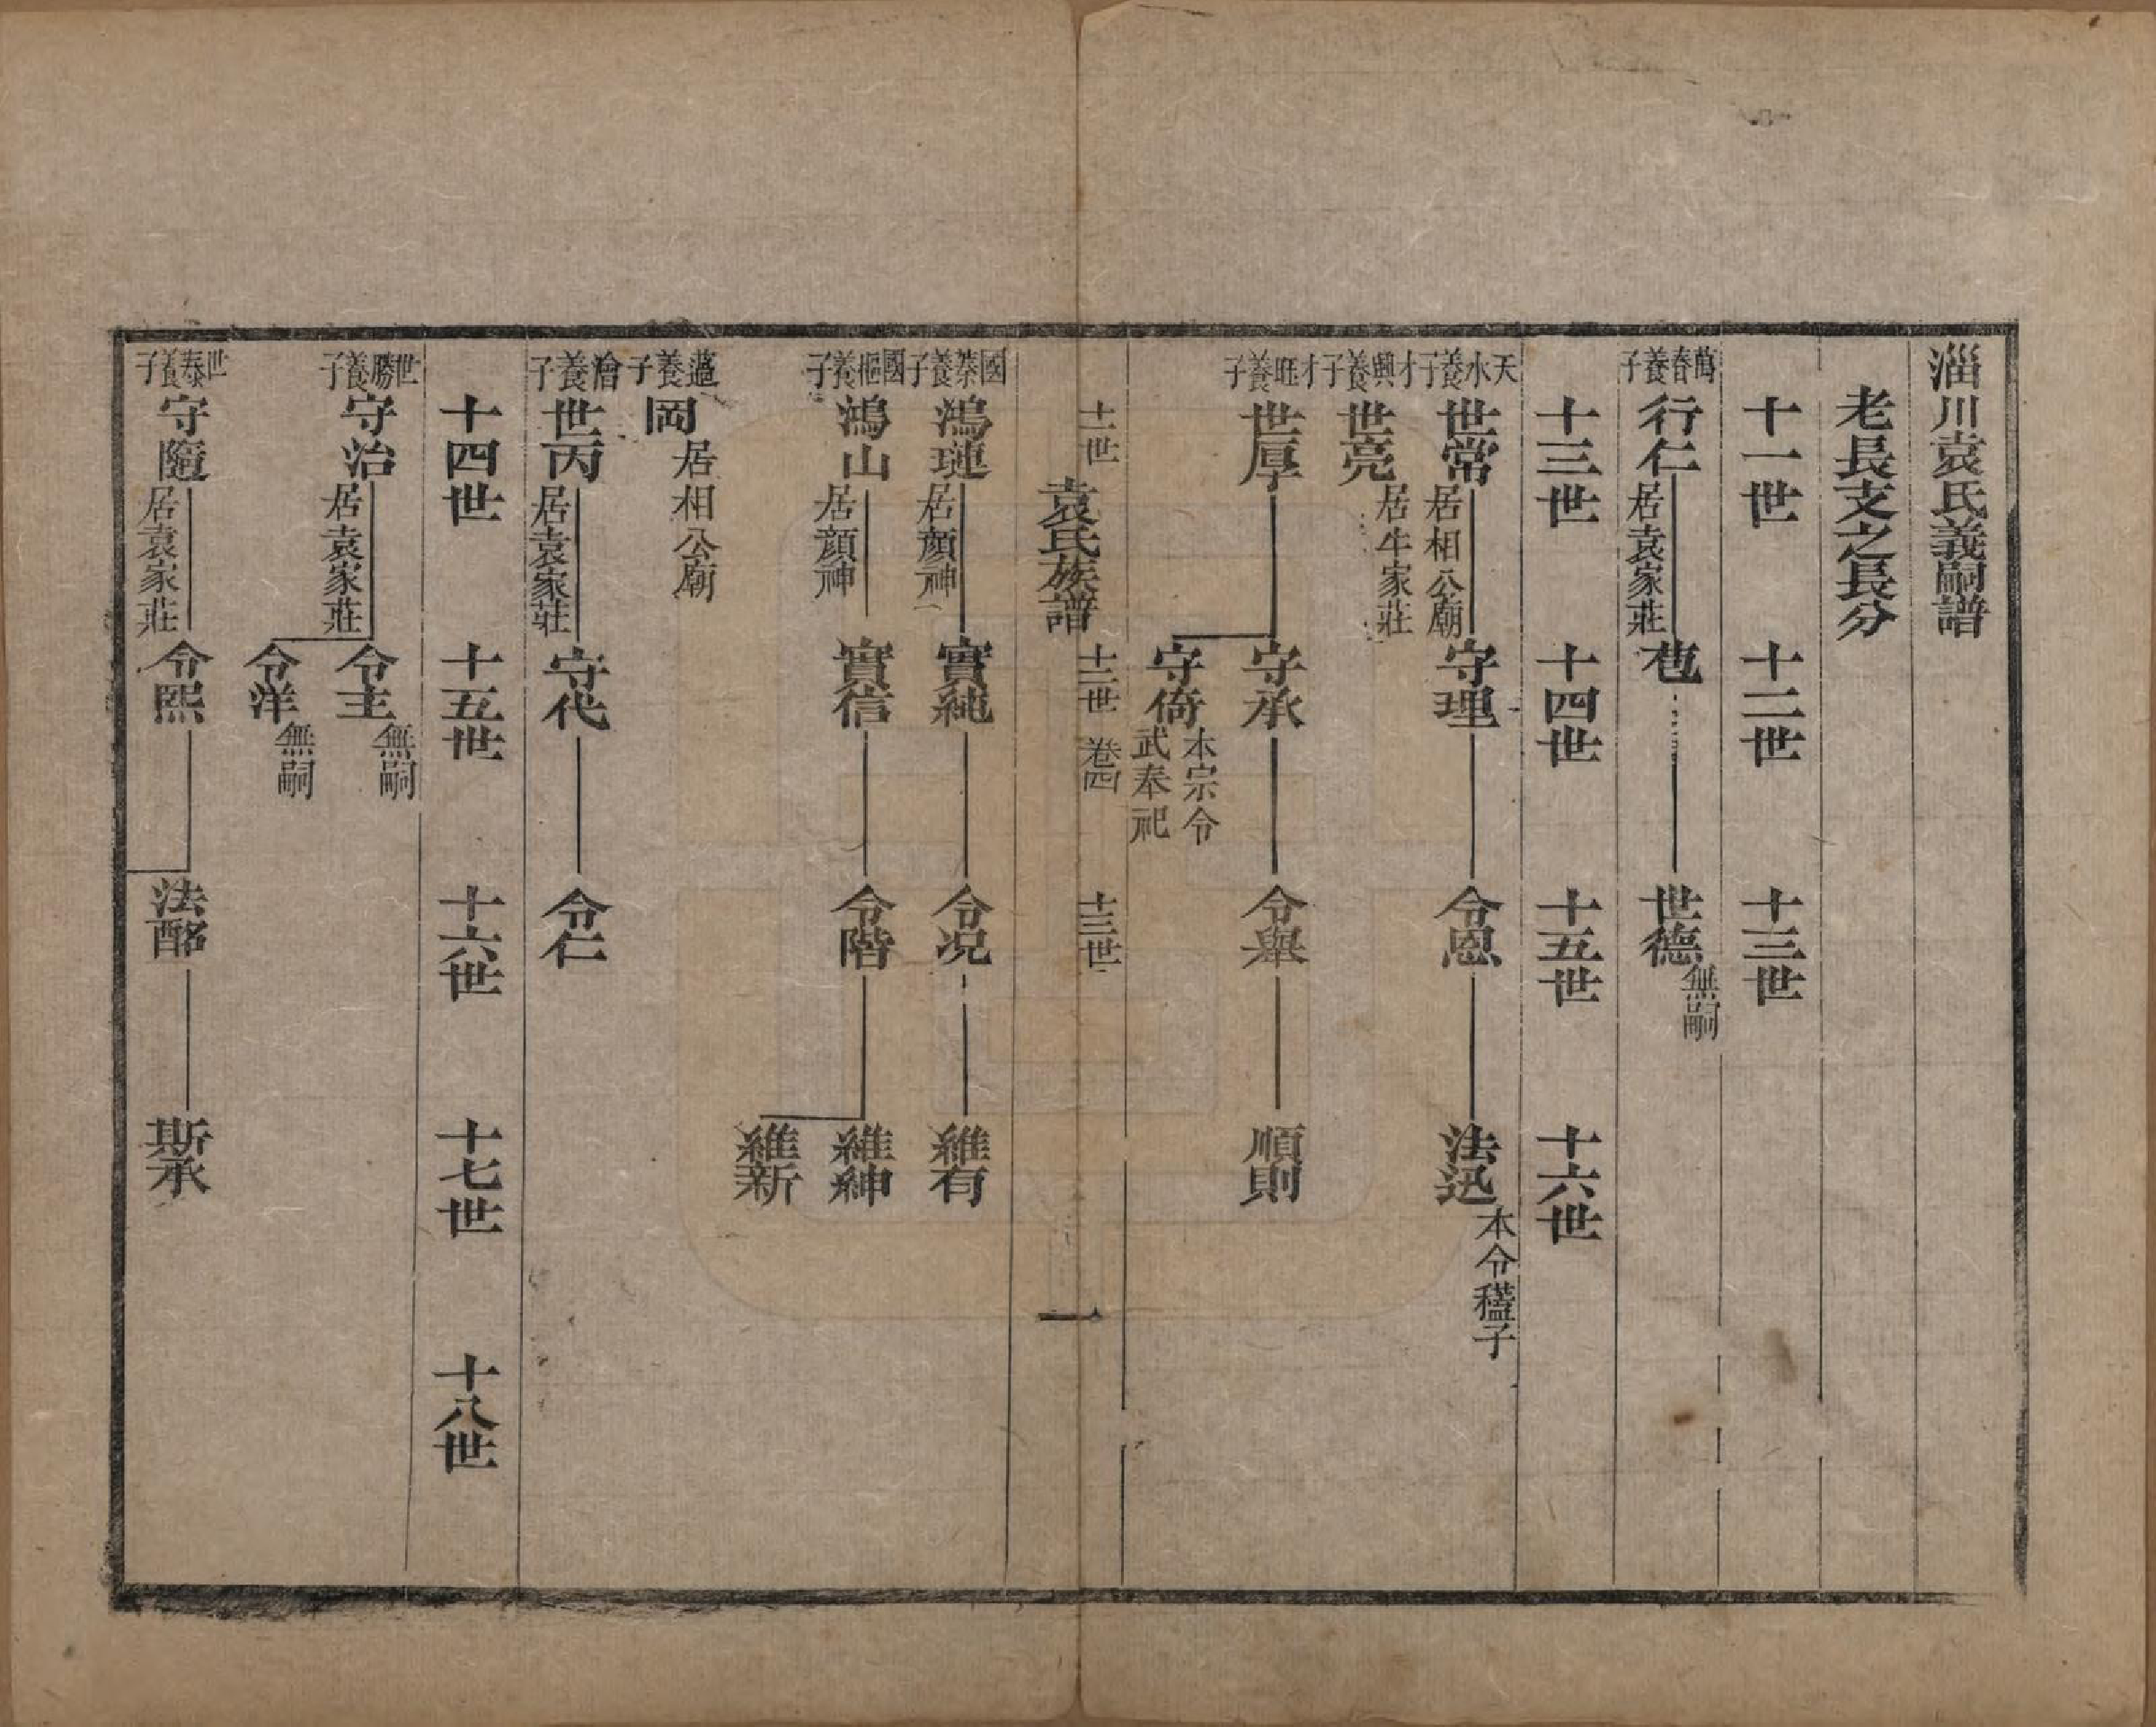 淄川袁氏義嗣譜
老長支之長分
十一世 十二世 十三世
萬春養子
行仁 居袁家莊 苞 世德 無嗣
十三世 十四世 十五世 十六世
天水養子
世常 居相公廟 守理 令恩 法迅 本令穩子
才興養子
世亮 居牛家莊
才旺養子
世厚 守承 令舉 順則
守倚 本宗令武奉祀
袁氏族譜 卷四 一
十一世 十二世 十三世
國蔡養子
鴻璉 居顏神 實純 令況 維有
國樞養子
鴻山 居顏神 實信 令階 維紳
維新
養子
岡 居相公廟
澮養子
世丙 居袁家莊 守代 令仁
十四世 十五世 十六世 十七世 十八世
世勝養子
守治 居袁家莊 令主 無嗣
令洋 無嗣
世泰養子
守隨 居袁家莊 令熙 法酩 斯承